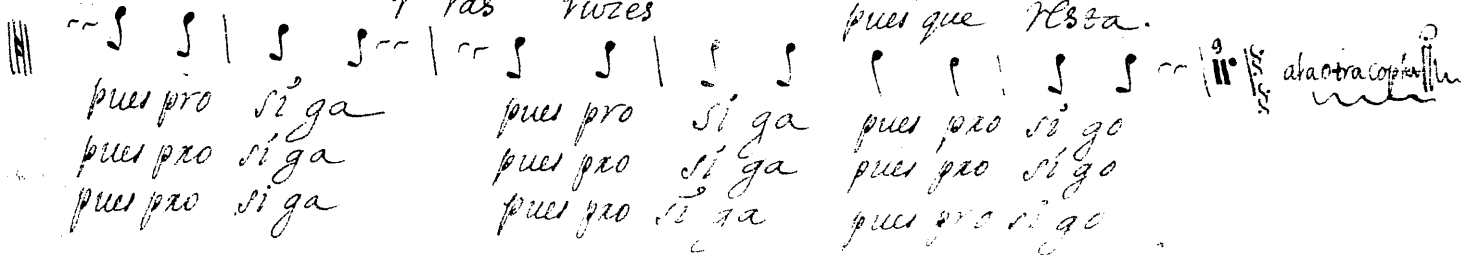 pues que resta.
a la otra copla
pues pro siga pues pro siga pues pro sigo
pues pro siga pues pro siga pues pro sigo
pues pro siga pues pro siga pues pro sigo